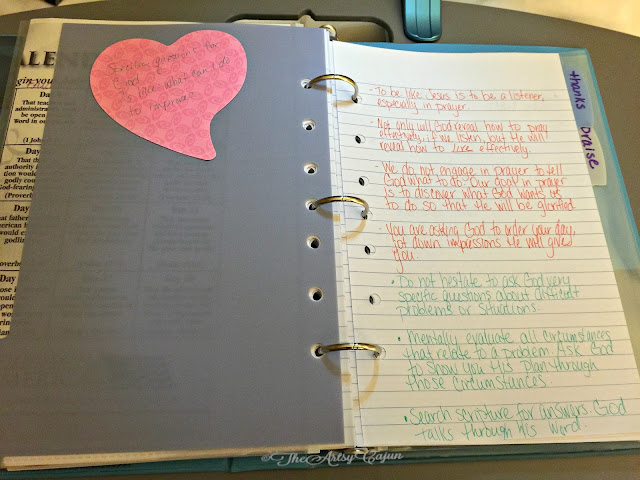 ALEN
gin you
Day
That
administra
be open
Word in o
(1 Job
Day
That th
authority i
tion would
godly cou
God-fearing
(Proverb
Day
that father
godlin
Day
Specific questions for
God.
Is like what can I do
to improve?
- To be like Jesus is to be a listener,
especially in prayer.
- Not only will God reveal how to pray
effectively, if we listen, but He will
reveal how to live effectively.
- We do not engage in prayer to tell
God what to do. Our goal in prayer
is to discover what God wants us
to do so that He will be glorified.
- You are asking God to order your day,
jot down impressions He will give
you.
• Do not hesitate to ask God very
specific questions about difficult
problems or situations.
• Mentally evaluate all circumstances
that relate to a problem. Ask God
to show you His plan through
those circumstances.
• Search scripture for answers. God
talks through His Word.
thanks
Praise
©TheArtsyCajun